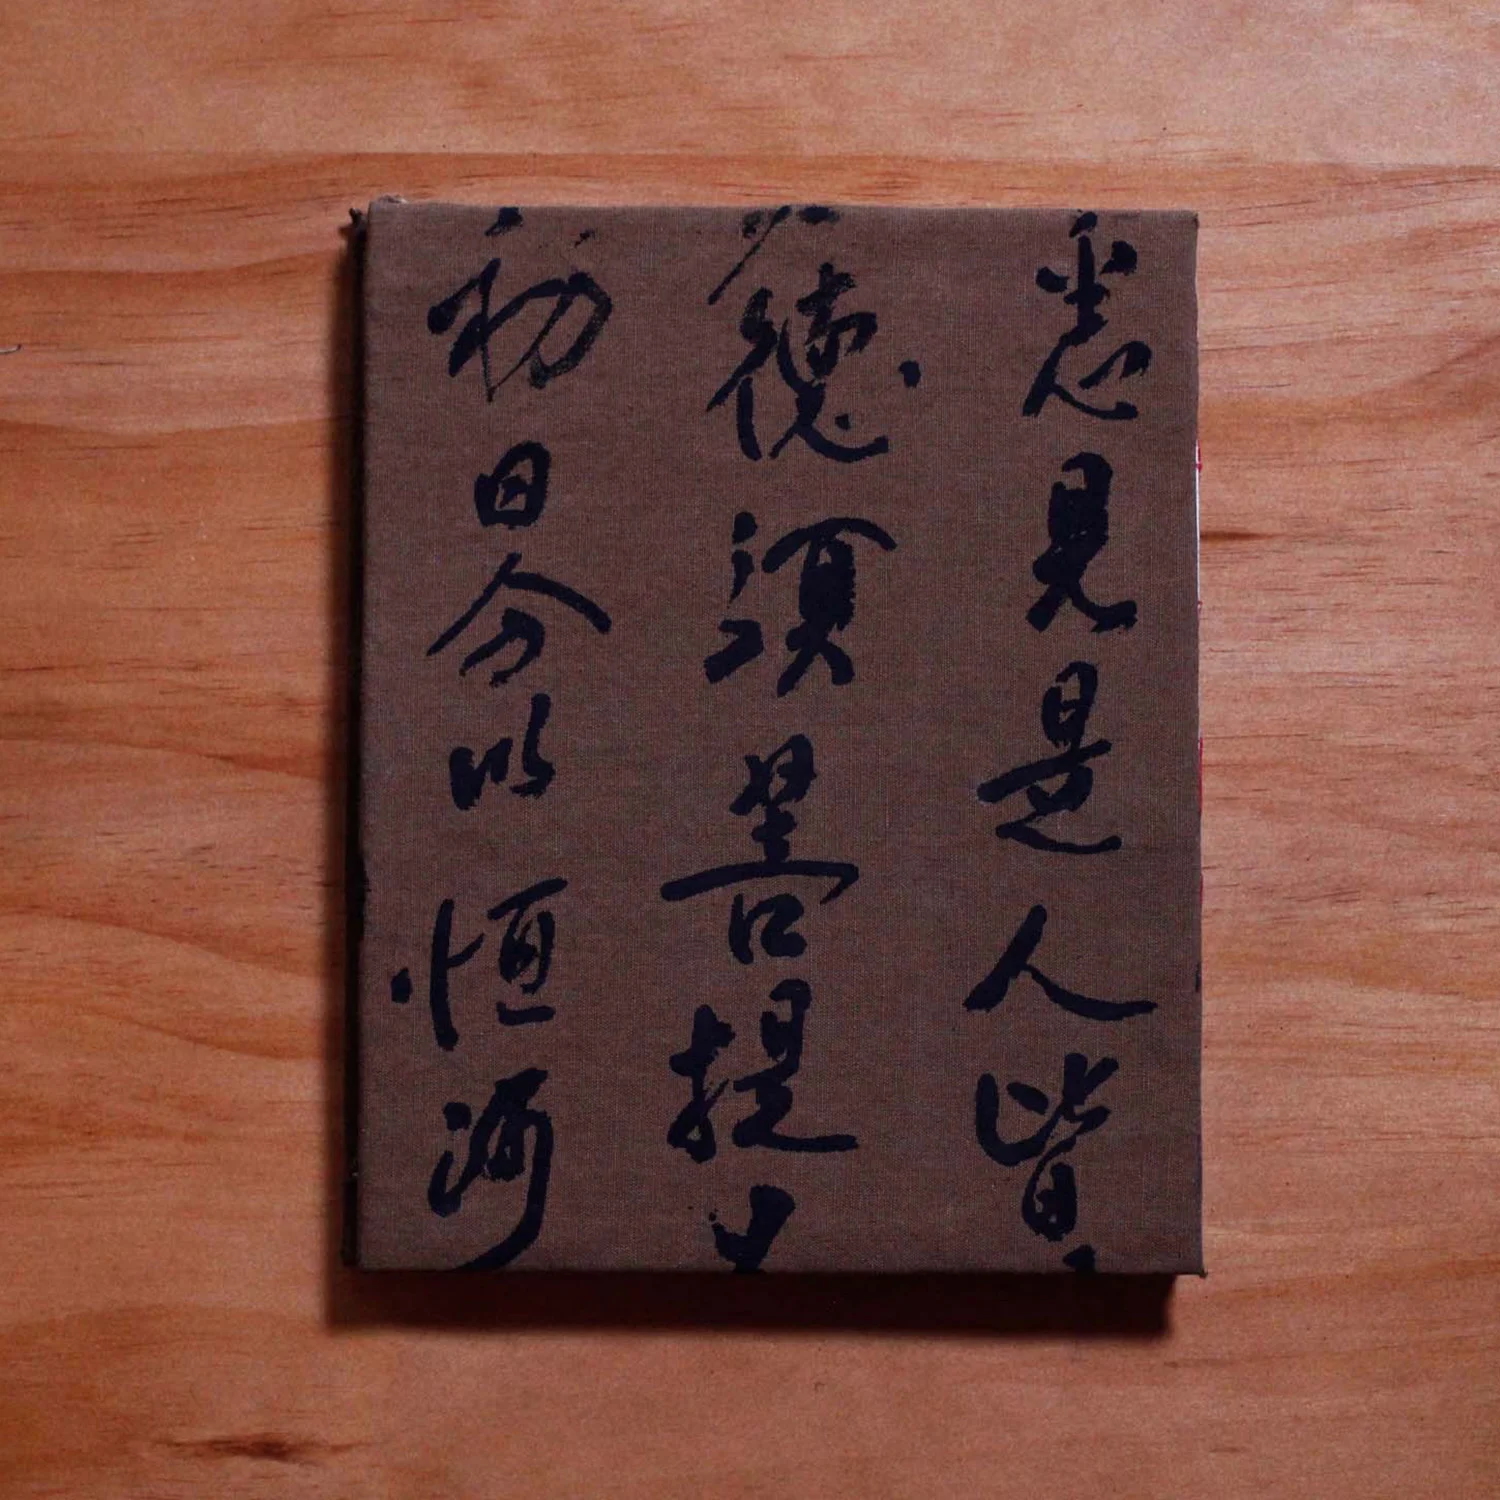 悉見是人皆
德須菩提
初日分以恒河